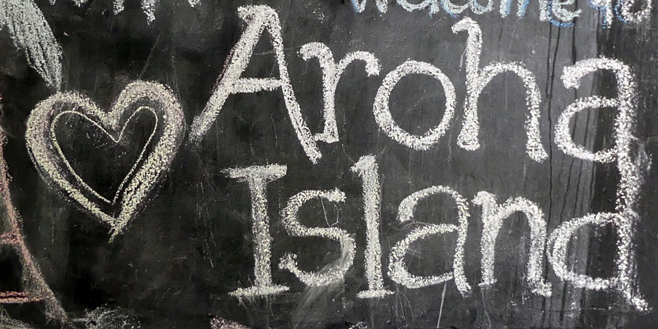 Welcome to
Aroha
Island